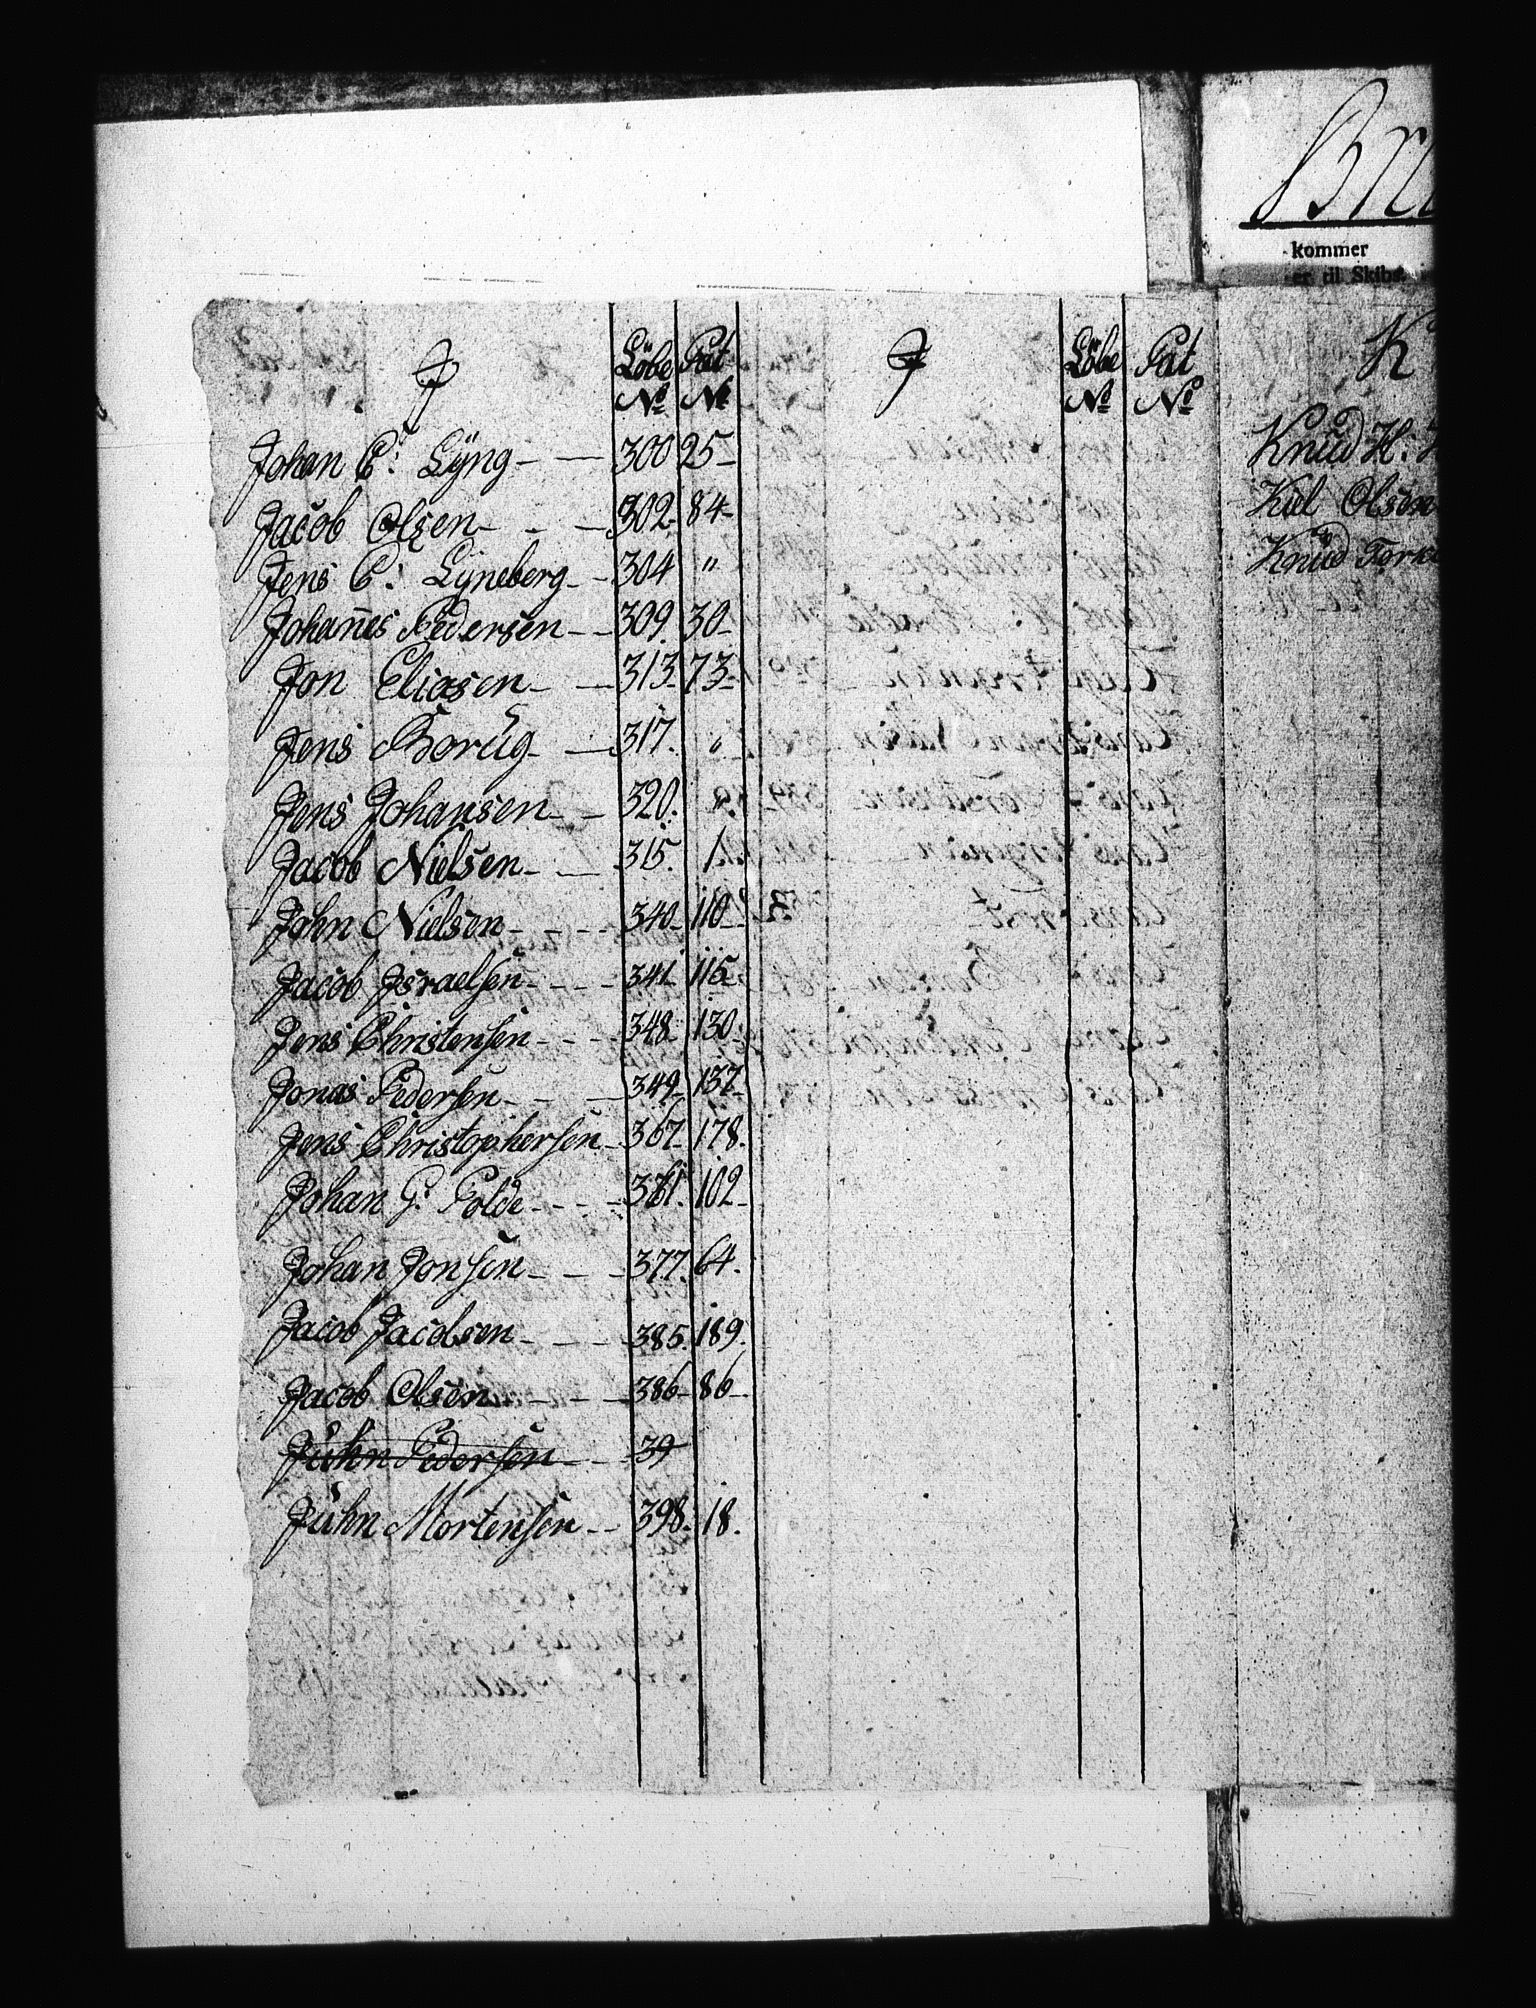 J Löbe No Pat No
Johan C: Lÿng - - 300 25 -
Jacob Olsen - - - 302 - 84 -
Jens C: Lÿneberg - - 304 "
Johannes Pedersen - - 309. 30 -
Jon Eliasen - - 313 - 73 -
Jens Borüg - - 317. "
Jens Johansen - - 320. "
Jacob Nielsen - - 315. 1.
John Nielsen - - - - 340 - 110 -
Jacob Israelsen - - - - 341 115
Jens Christensen - - - 348 130
Jonas Pedersen - - - 349 - 137 -
Jens Christophersen - 367 - 178.
Johan G: Polde - - - - 361. 102 -
Johan Jonsen - - - - 377. 64.
Jacob Jacobsen - - - - 385. 189.
Jacob Olsen - - - - 386 - 86 -
Jühn Pedersen - - - 39
Jühn Mortensen - - 398. 18.
J Löbe No Pat No
Bru
kommer
er til Skibs
K
Knüd H.
Kiel Olsen
Knüd